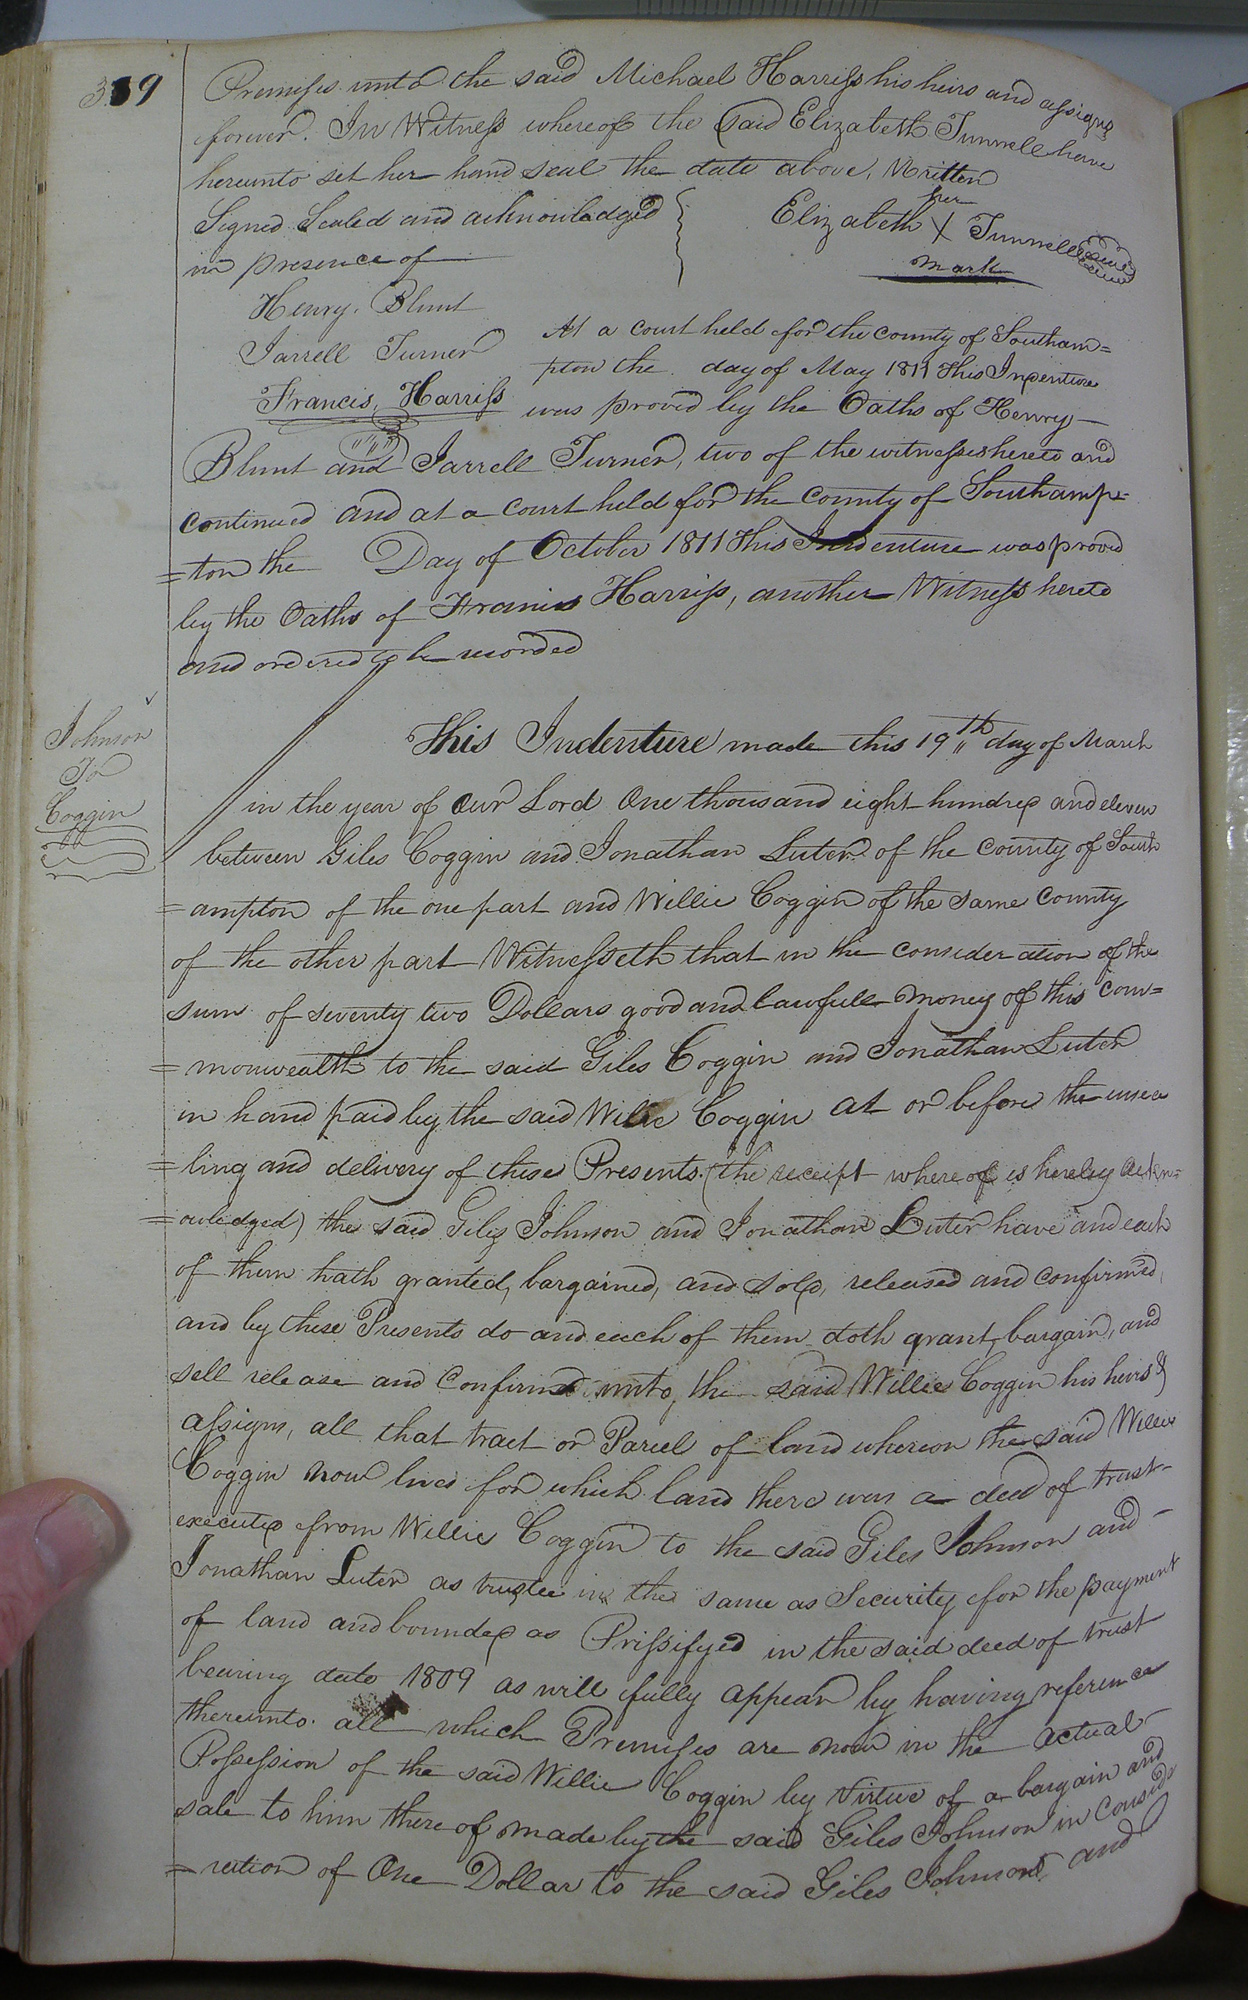 339
Premises unto the said Michael Harriss his heirs and assigns
forever. In Witness whereof the said Elizabeth Tunnell have
hereunto set her hand seal the date above, Written
Signed Sealed and acknowledged
in presence of
her
Elizabeth X Tunnell
mark
Henry. Blunt
Jarrell Turner
Francis, Harriss
At a court held for the county of Southam=
pton the day of May 1811 This Indenture
was proved by the Oaths of Henry
Blunt and Jarrell Turner, two of the witnesses hereto and
continued and at a court held for the county of Southamp=
=ton the Day of October 1811 This Indenture was proved
by the Oaths of Francis Harriss, another Witness hereto
and ordered to be recorded
Johnson
To
Coggin
This Indenture made this 19th day of March
in the year of Our Lord One thousand eight hundred and eleven
between Giles Coggin and Jonathan Luter of the county of South
=ampton of the one part and Willie Coggin of the same county
of the other part Witnesseth that in the consideration of the
sum of seventy two Dollars good and lawfull money of this com=
=monwealth to the said Giles Coggin and Jonathan Luter
in hand paid by the said Willie Coggin at or before the
=ling and delivery of these Presents (the receipt whereof is hereby ackn=
=owledged) the said Giles Johnson and Jonathan Luter have and each
of them hath granted, bargained, and sold, released and confirmed,
and by these Presents do and each of them doth grant, bargain, and
sell release and Confirm unto, the said Willie Coggin his heirs &
assigns, all that tract or Parcel of land whereon the said Willie
Coggin now lives for which land there was a deed of trust
executed from Willie Coggin to the said Giles Johnson and
Jonathan Luter as trustee in the same as Security for the payment
of land and bounded as Prissifyed in the said deed of trust
bearing date 1809 as will fully appear by having reference
thereunto. all which Premises are now in the actual
Possession of the said Willie Coggin by Virtue of a bargain and
sale to him there of made by the said Giles Johnson in conside
=ration of One Dollar to the said Giles Johnson, and